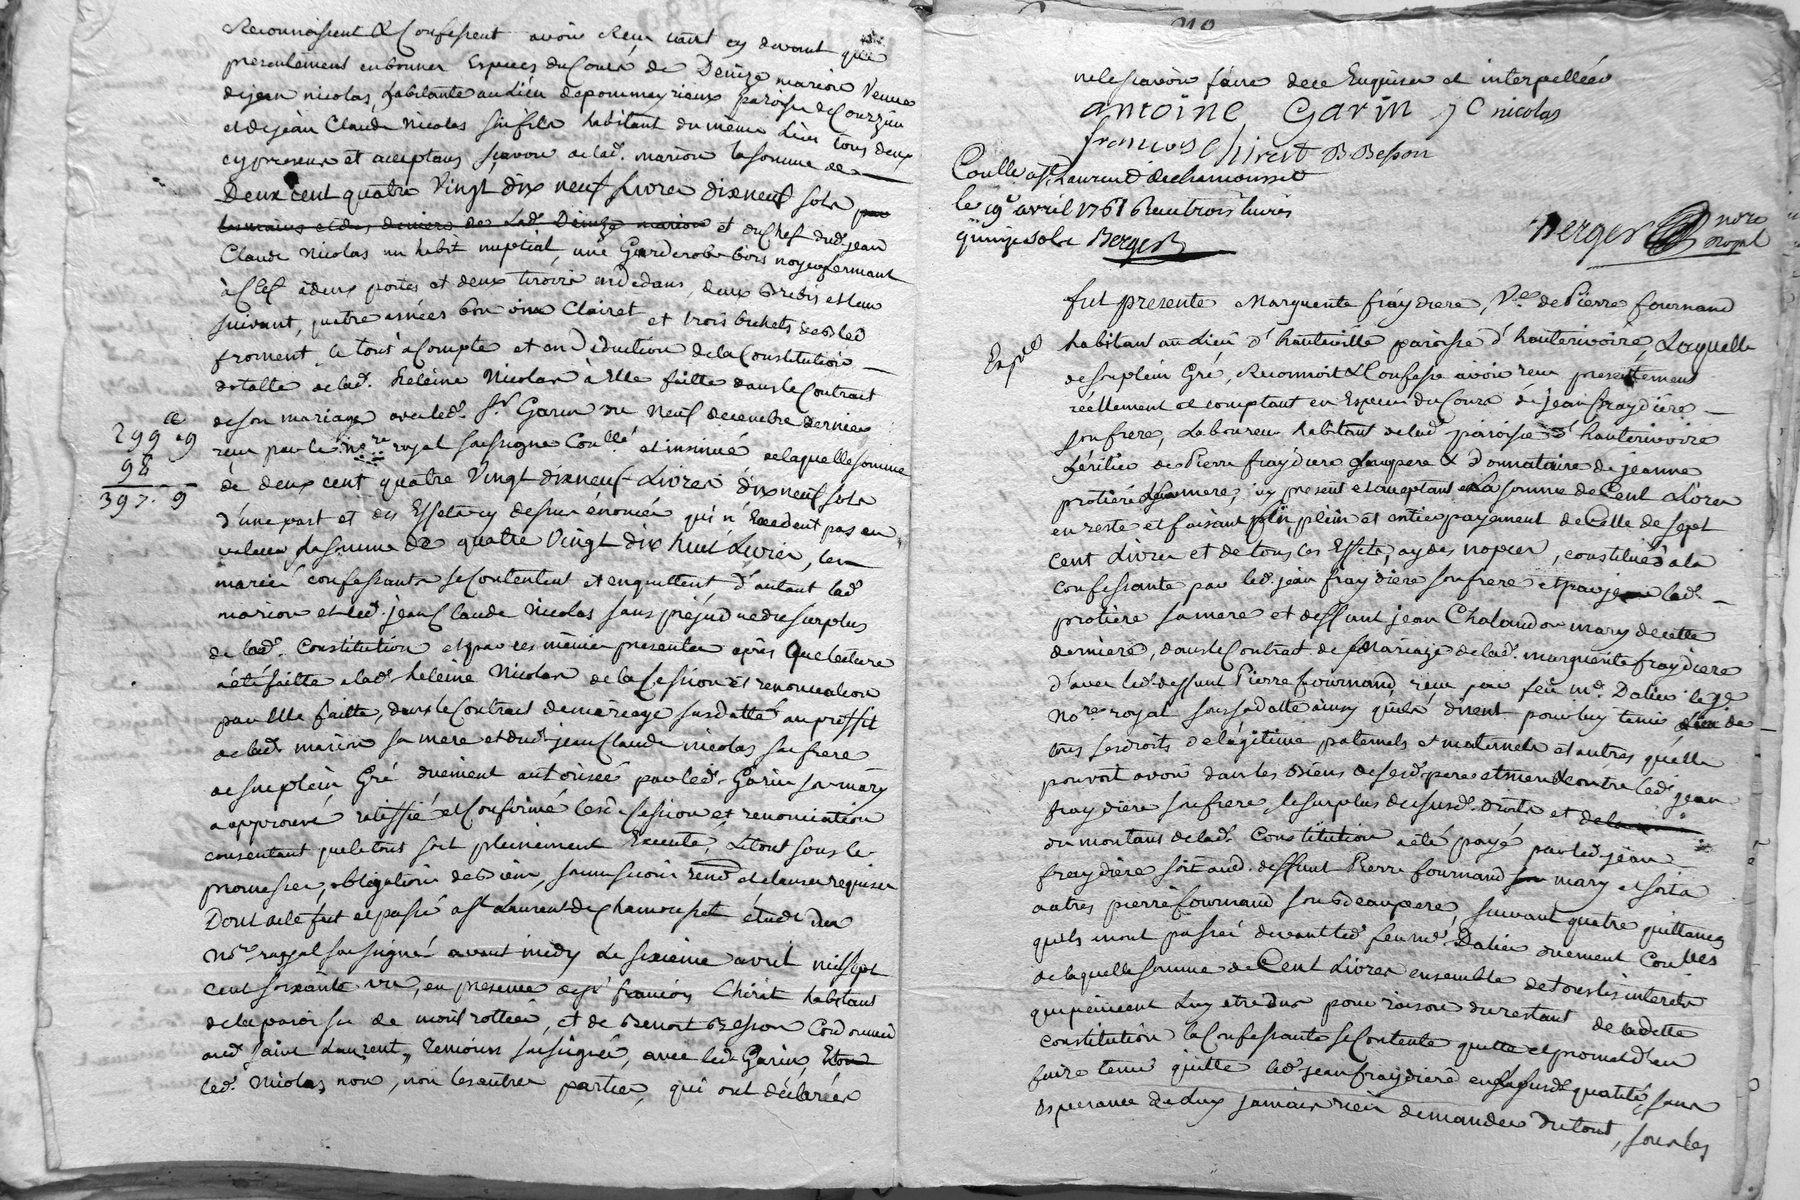 Reconnoissent & Confessent avoir Reçu tant cy devant que
presentement en bonnes Espèces du Cours de Denize marion Veuve
de jean nicolas, habitante au lieu de pommeyrieux paroisse de Courzieu
et de jean Claude Nicolas son fils habitant du même Lieu tous deux
cy presens et acceptans sçavoir de lad. marion la somme de
Deux cent quatre Vingt dix neuf Livres dix neuf sols par
les mains et des deniers de Lad. Denize marion et du Chef dud. jean
Claude Nicolas un habit nuptial, une Garderobe bois noyer fermant
à Clef à deux portes et deux tiroirs au dedans, deux Brebis et leur
suivant, quatre asnées bon vin Clairet et trois bichets bled
froment, le tout à Compte et en Déduction de la Constitution
dotalle de lad. heleine Nicolas à Elle faitte dans le Contrat
de son mariage avec led. Sr. Garin du Neuf decembre dernier
reçu par le nre royal soussigné Coullé et insinué de laquelle somme
de deux cent quatre Vingt dix neuf Livres dix neuf sols
d'une part et des Effets cy dessus énoncés qui n'Excedent pas en
valeur la somme de quatre Vingt dix huit Livres, les
mariés confessants se Contentent et en quittent d'autant lad.
marion et led. jean Claude Nicolas sans préjudice du surplus
de lad. Constitution et par ces mêmes presentes après que lecture
a été faitte à lad. heleine Nicolas de la Cession et renonciation
par Elle faitte, dans le Contrat de mariage susdatté au proffit
de lad. marion sa mere et dud. jean Claude nicolas son frere
de son plein Gré duement autorisée par led. Garin son mary
a approuvé ratiffié et Confirmé lesd. Cession et renonciation
consentant que le tout soit pleinement Executé, Le tout sous les
promesses, obligation de biens, soumissions renon. et clauses requises
Dont acte fait et passé à St Laurent de Chamousset étude du
Nre royal soussigné avant midy Le sixième avril mil sept
cent soixante un, en presence de sr françois Chirat habitant
de la paroisse de montrottier, et de Benoit Besson Cordonnier
aud. Saint Laurent, Temoins soussignés, avec led. Garin, Et
led. Nicolas non, non les autres parties, qui ont déclarés
299 tt 19
98
397. 19
ne le sçavoir faire de ce Enquises et interpellées
antoine Garin J C nicolas
françois Chirat B Besson
Coullé à St. Laurent de chamousset
le 19e avril 1761 Reçu trois livres
quinze sols Berger
Berger nore royal
Exp.ée
fut presente Marguerite fraydiere, Ve. de Pierre fournand
habitant au Lieu d'hauteville paroisse d'hauterivoire, Laquelle
de son plein Gré, Reconnoit & Confesse avoir reçu presentement
réellement et comptant en Especes du Cours de jean fraydiere
son frere, Laboureur habitant de lad. paroisse d'hauterivoire
héritier de Pierre fraydiere Leur pere & donnataire de jeanne
protiere Leur mere, icy present et acceptant La somme de Cent Livres
en reste et faisant plein et entier payement de Celle de sept
cent Livres et de tous les Effets, aydes nopces, constitués à la
confessante par led. jean fraydiere son frere et par lad.
protiere sa mere et deffunt jean Chalandon mary de cette
derniere, dans le Contrat de Mariage de lad. marguerite fraydiere
d'avec led. deffunt Pierre fournand, reçu par feu me. Dalier
Nore royal sous sa datte ainsy qu'ils disent pour luy tenir lieu de
tous ses droits de légitime paternels et maternels et autres qu'elle
pouvoit avoir dans les Biens de sesd. pere et mere & contre led. jean
fraydiere son frere, le surplus desusd. droits et
du montant de lad. Constitution a été payé par led. jean
fraydiere soit aud. deffunt Pierre fournand son mary et soit à
autres pierre fournand son Beaupere, suivant quatre quittances
qu'ils en ont passés devant led. feu me. Dalier duement Coullées
de laquelle somme de Cent Livres ensemble de tous les interets
qui peuvent Luy etre dus pour raison du restant de ladite
constitution la Confessante se Contente quitte et promet d'en
faire tenir quitte led. jean fraydiere en sa susd. qualité, sans
Esperance de Luy jamais rien demander du tout, sous les